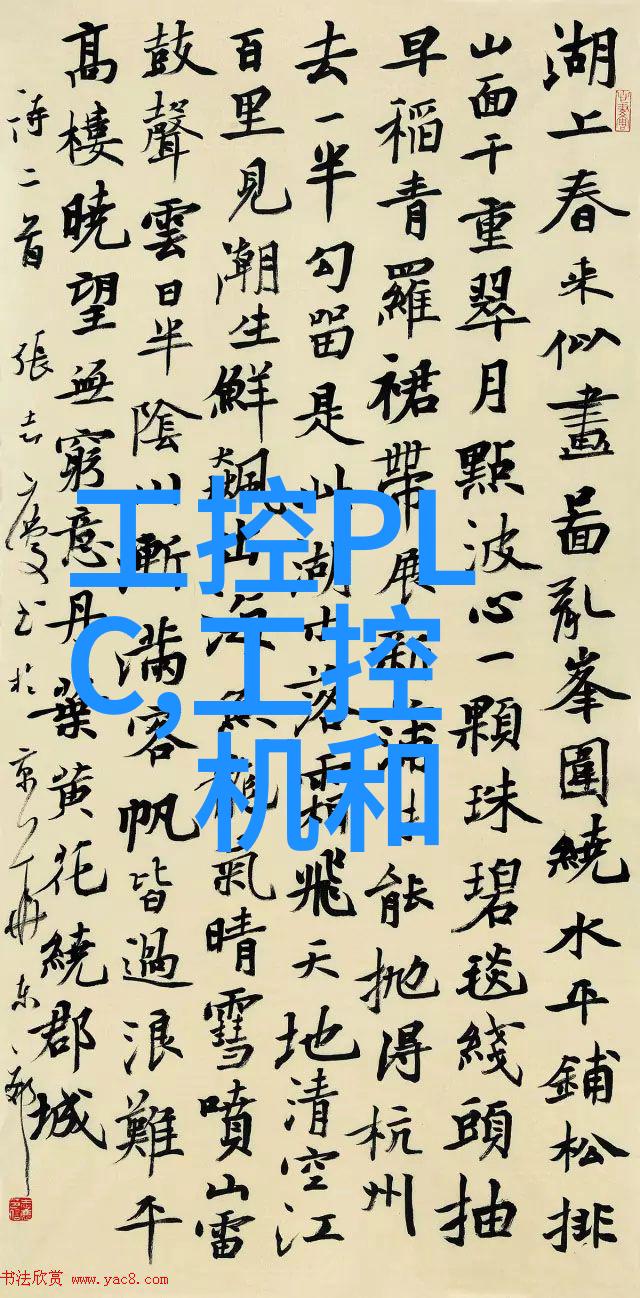 湖上春来似畫啚亂峯圍繞水平鋪松排
山面千重翠月點波心一顆珠碧毯綫頭抽
早稻青羅裙帶展新蒲未能抛得杭州
去一半勾留是此湖木落霜飛天地清空江
百里見潮生鮮飈出海魚龍氣晴雪噴山雷
鼓聲雲日半陰川漸滿客帆皆過浪難平
高樓曉望無窮意丹葉黄花繞郡城
詩二首 張志慶书於京
工控PL
C,工控
机和
书法欣赏 www.yac8.com